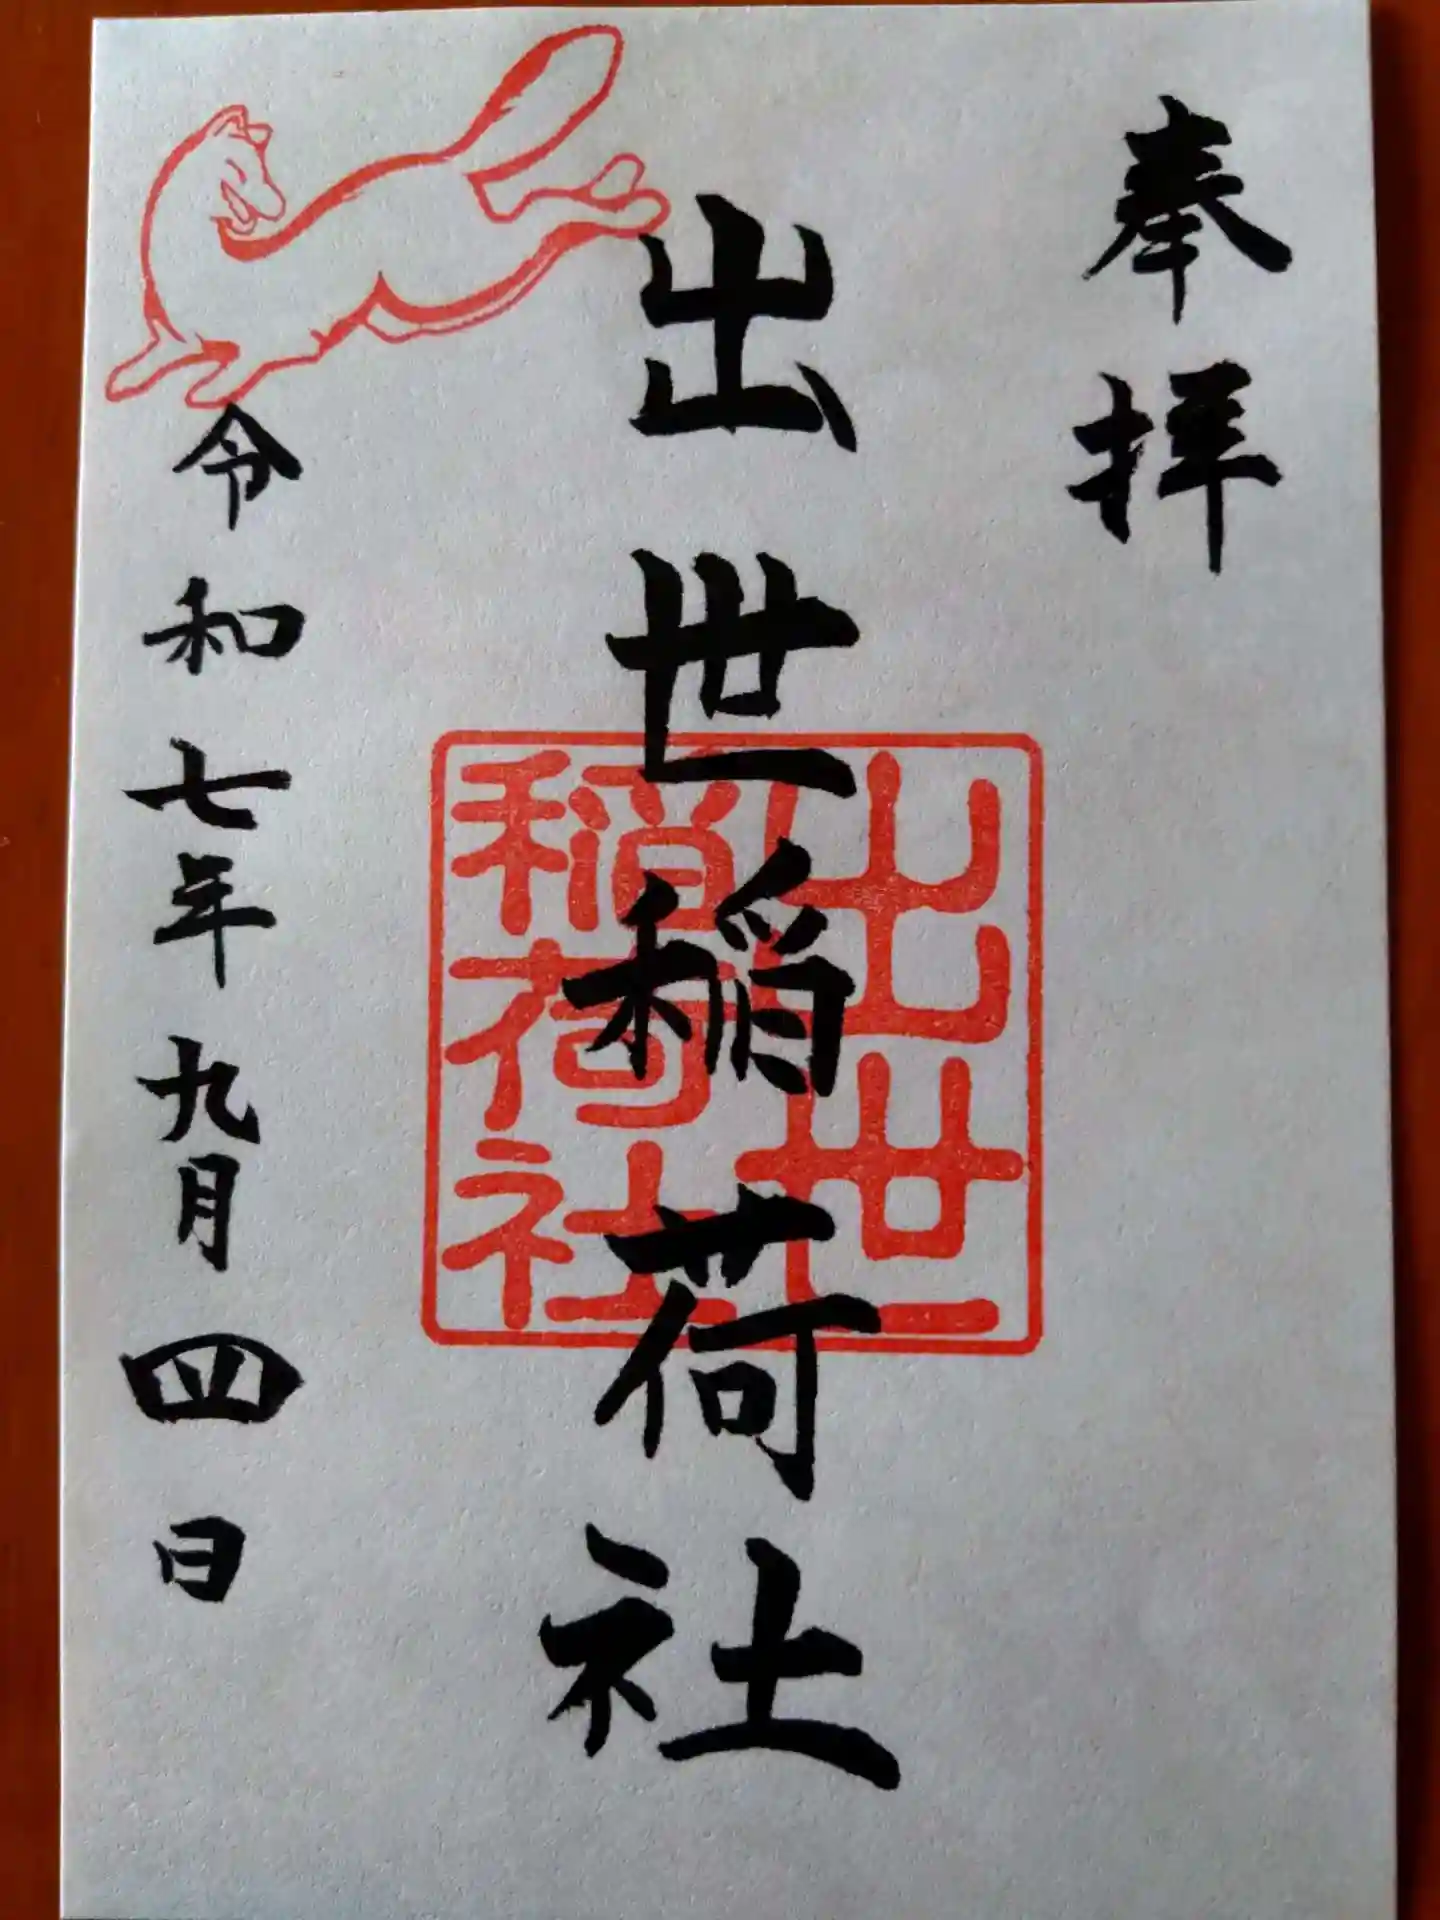 奉拝
出世稲荷社
出世
稲荷社
令和七年九月四日